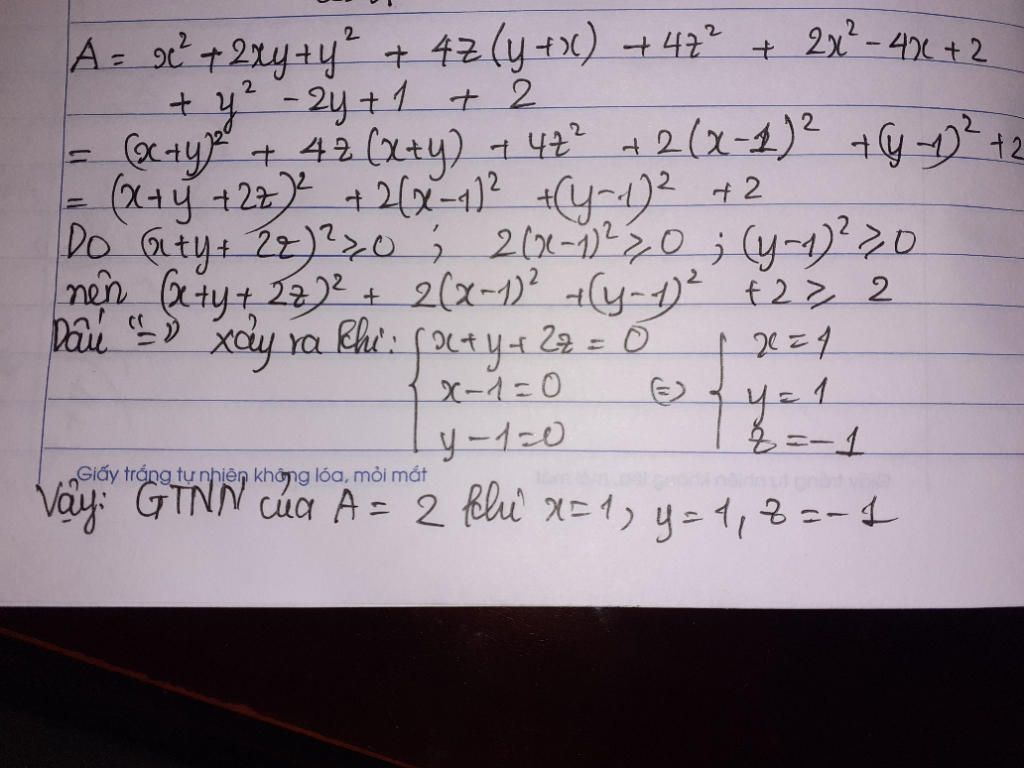 A = x² + 2xy + y² + 4z(y+x) + 4z² + 2x² - 4x + 2
+ y² - 2y + 1 + 2
= (x+y)² + 4z(x+y) + 4z² + 2(x-1)² + (y-1)² + 2
= (x+y+2z)² + 2(x-1)² + (y-1)² + 2
Do (x+y+2z)² ⩾ 0 ; 2(x-1)² ⩾ 0 ; (y-1)² ⩾ 0
nên (x+y+2z)² + 2(x-1)² + (y-1)² + 2 ⩾ 2
Dấu "=" xảy ra khi: { x+y+2z = 0 { x = 1
x-1=0 ⇔ y = 1
y-1=0 z = -1
Giấy trắng tự nhiên không lóa, mỏi mắt
Vậy: GTNN của A = 2 khi x=1, y=1, z=-1